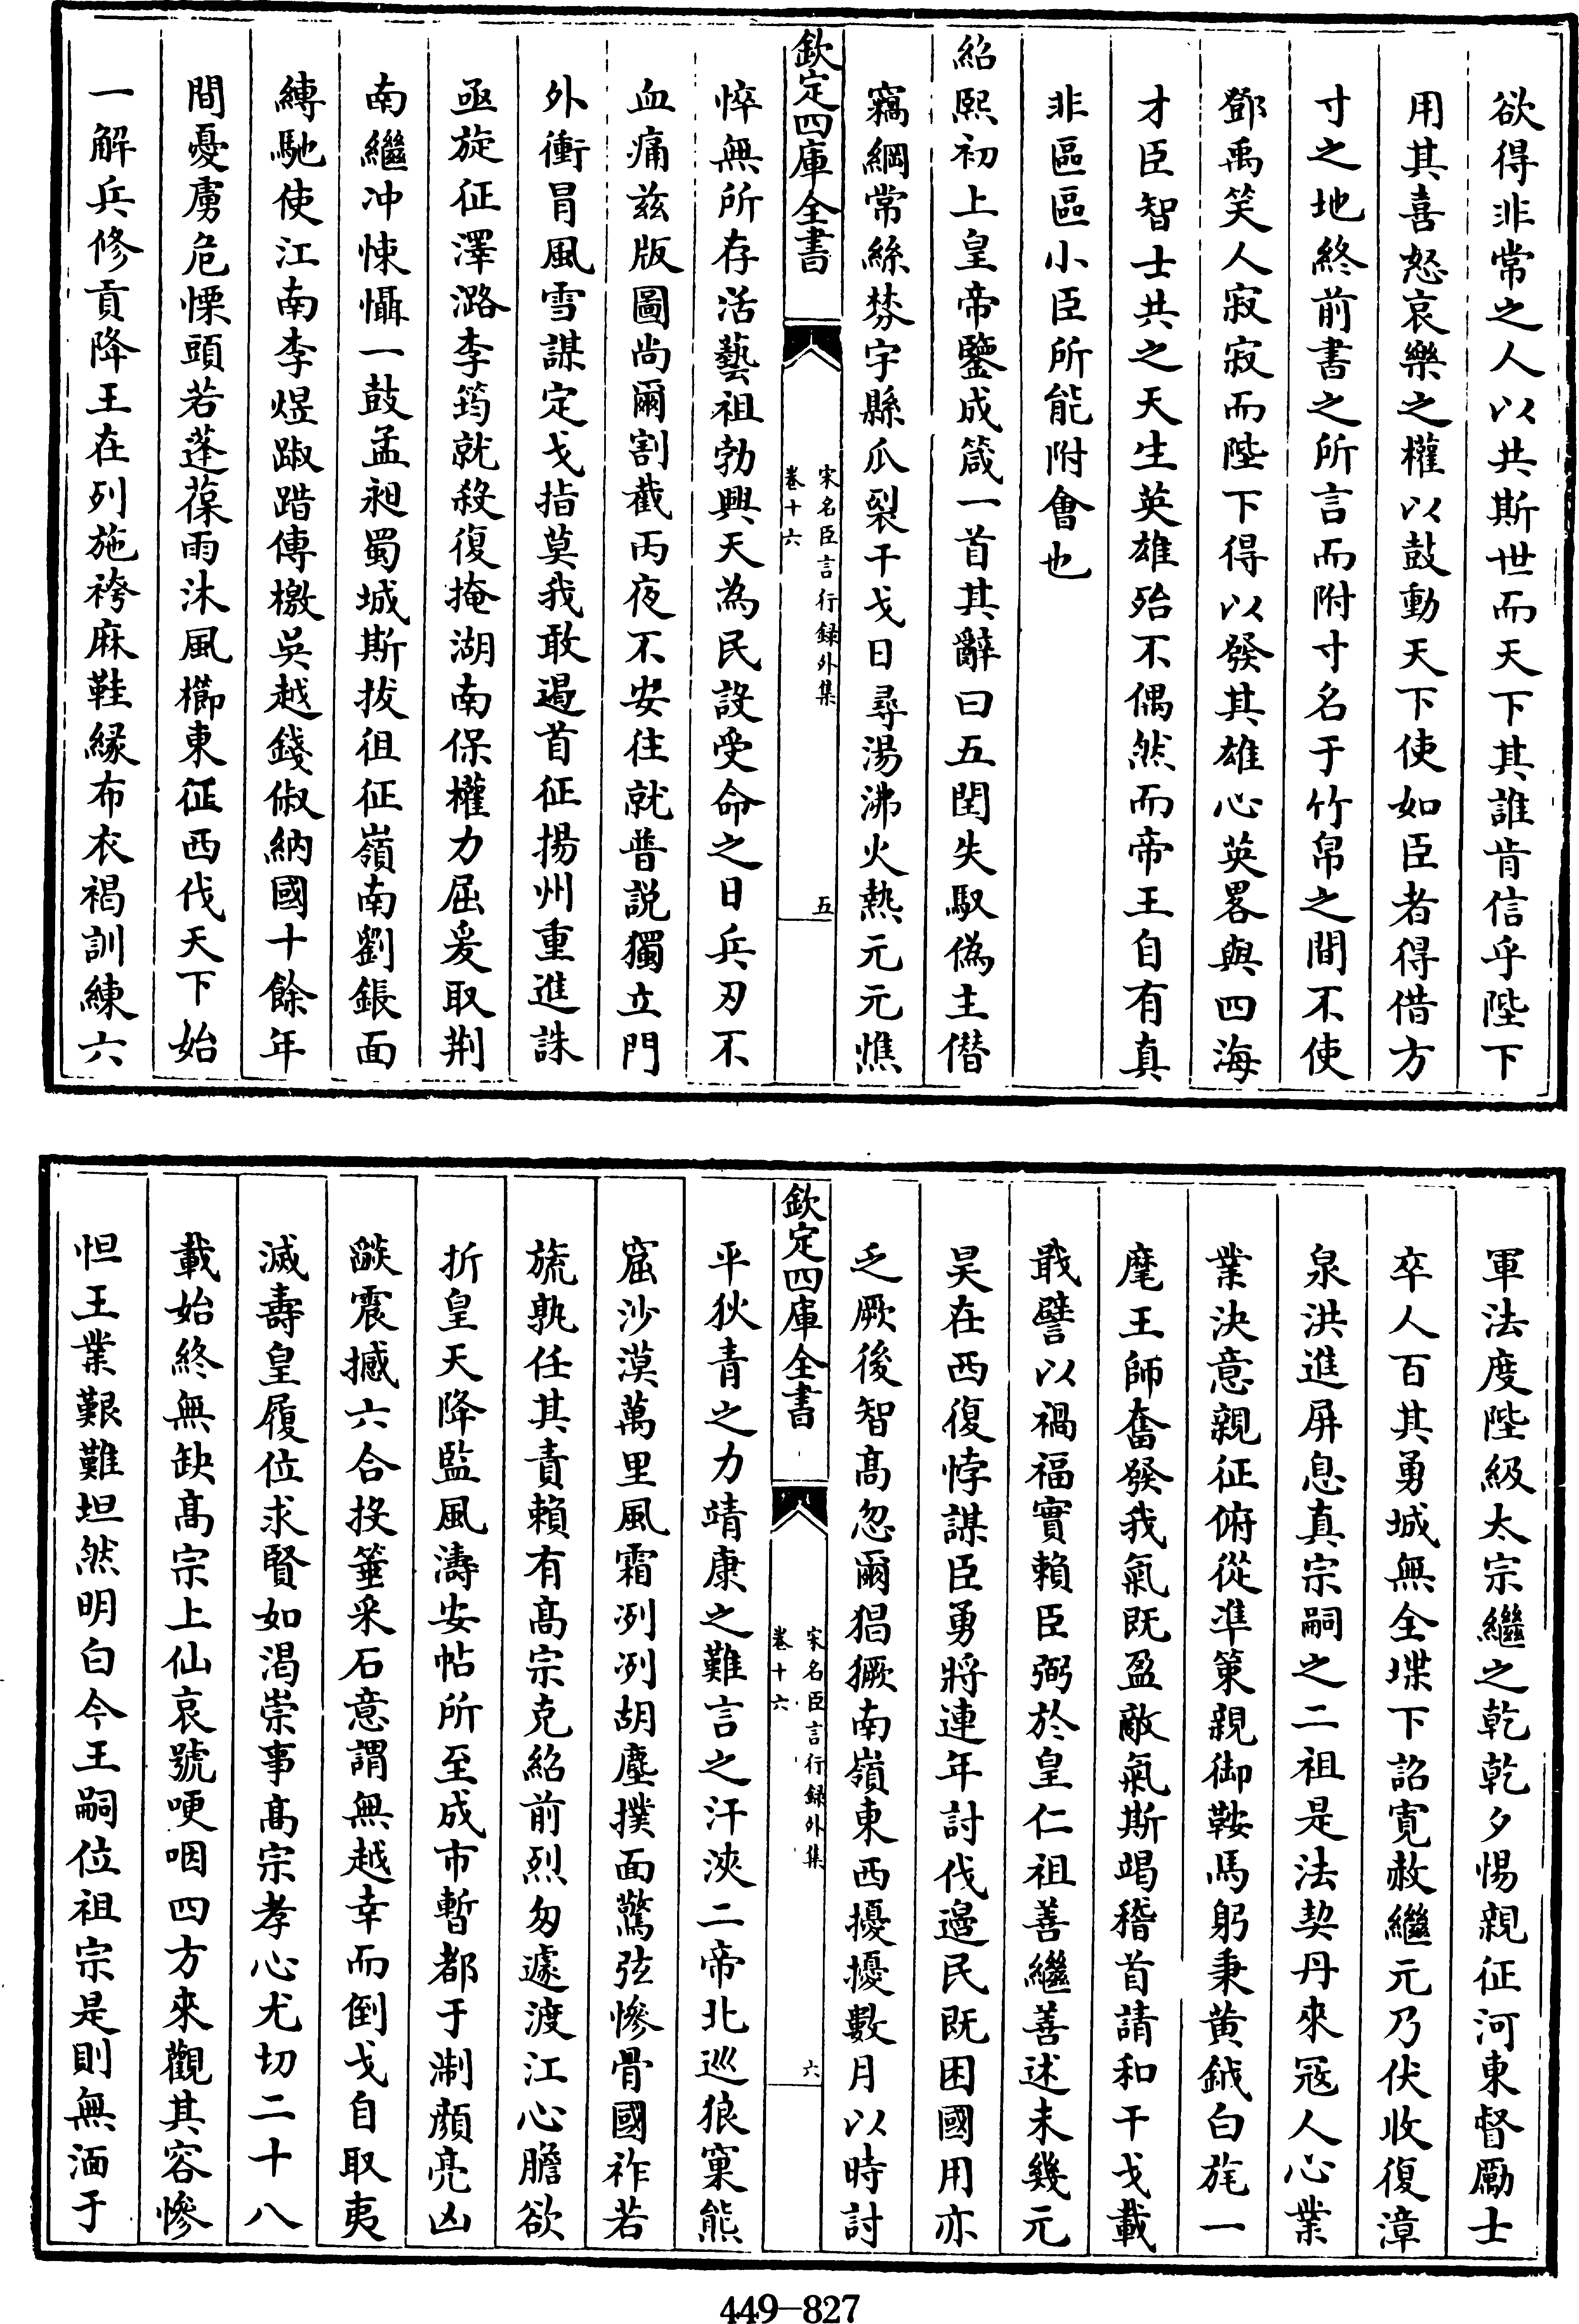 欲得非常之人以共斯世而天下其誰肯信乎陛下
用其喜怒哀樂之權以鼓動天下使如臣者得借方
寸之地終前書之所言而附寸名于竹帛之間不使
鄧禹笑人寂寂而陛下得以發其雄心英畧與四海
才臣智士共之天生英雄殆不偶然而帝王自有真
非區區小臣所能附會也
紹熙初上皇帝鑒成箴一首其辭曰五閏失馭偽主僭
竊綱常絲棼宇縣瓜裂干戈日尋湯沸火熱元元憔
欽定四庫全書
宋名臣言行録外集
卷十六
五
悴無所存活藝祖勃興天為民設受命之日兵刃不
血痛兹版圖尚爾割截丙夜不安往就普説獨立門
外衝冐風雪謀定戈指莫我敢遏首征揚州重進誅
亟旋征澤潞李筠就殺復掩湖南保權力屈爰取荆
南繼冲悚懾一鼓孟昶蜀城斯拔徂征嶺南劉鋹面
縛馳使江南李煜踧踖傳檄吳越錢俶納國十餘年
間憂虜危慄頭若蓬葆雨沐風櫛東征西伐天下始
一解兵修貢降王在列施袴麻鞋緣布衣褐訓練六
軍法度陛級太宗繼之乾乾夕惕親征河東督勵士
卒人百其勇城無全堞下詔寛赦繼元乃伏收復漳
泉洪進屏息真宗嗣之二祖是法契丹來冦人心業
業決意親征俯從準策親御鞍馬躬秉黄鉞白旄一
麾王師奮發我氣既盈敵氣斯竭稽首請和干戈載
戢譬以禍福實賴臣弼於皇仁祖善繼善述未幾元
昊在西復悖謀臣勇將連年討伐邉民既困國用亦
乏厥後智髙忽爾猖獗南嶺東西擾擾數月以時討
欽定四庫全書
宋名臣言行録外集
卷十六
六
平狄青之力靖康之難言之汗浹二帝北巡狼窠熊
窟沙漠萬里風霜冽冽胡塵撲面驚弦慘骨國祚若
旒孰任其責賴有髙宗克紹前烈匆遽渡江心膽欲
折皇天降監風濤安帖所至成市暫都于淛顔亮凶
燄震撼六合投箠采石意謂無越幸而倒戈自取夷
滅壽皇履位求賢如渇崇事髙宗孝心尤切二十八
載始終無缺髙宗上仙哀號哽咽四方來觀其容慘
怛王業艱難坦然明白今王嗣位祖宗是則無湎于
449-827